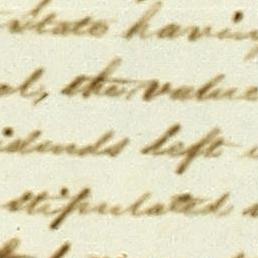 State having
the value
idends left
stipulated